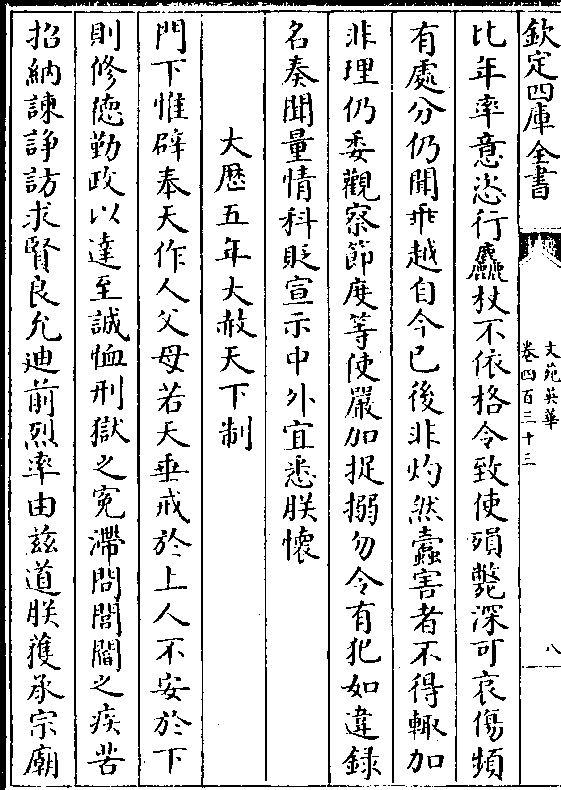 欽定四庫全書
文苑英華
卷四百三十三
八
比年率意恣行麤杖不依格令致使殞斃深可哀傷頻
有處分仍聞乖越自今已後非灼然蠹害者不得輒加
非理仍委觀察節度等使嚴加捉搦勿令有犯如違錄
名奏聞量情科貶宣示中外宜悉朕懷
大歷五年大赦天下制
門下惟辟奉天作人父母若天垂戒於上人不安於下
則修德勤政以達至誠恤刑獄之寃滯問閭閻之疾苦
招納諫諍訪求賢良允迪前烈率由兹道朕獲承宗廟